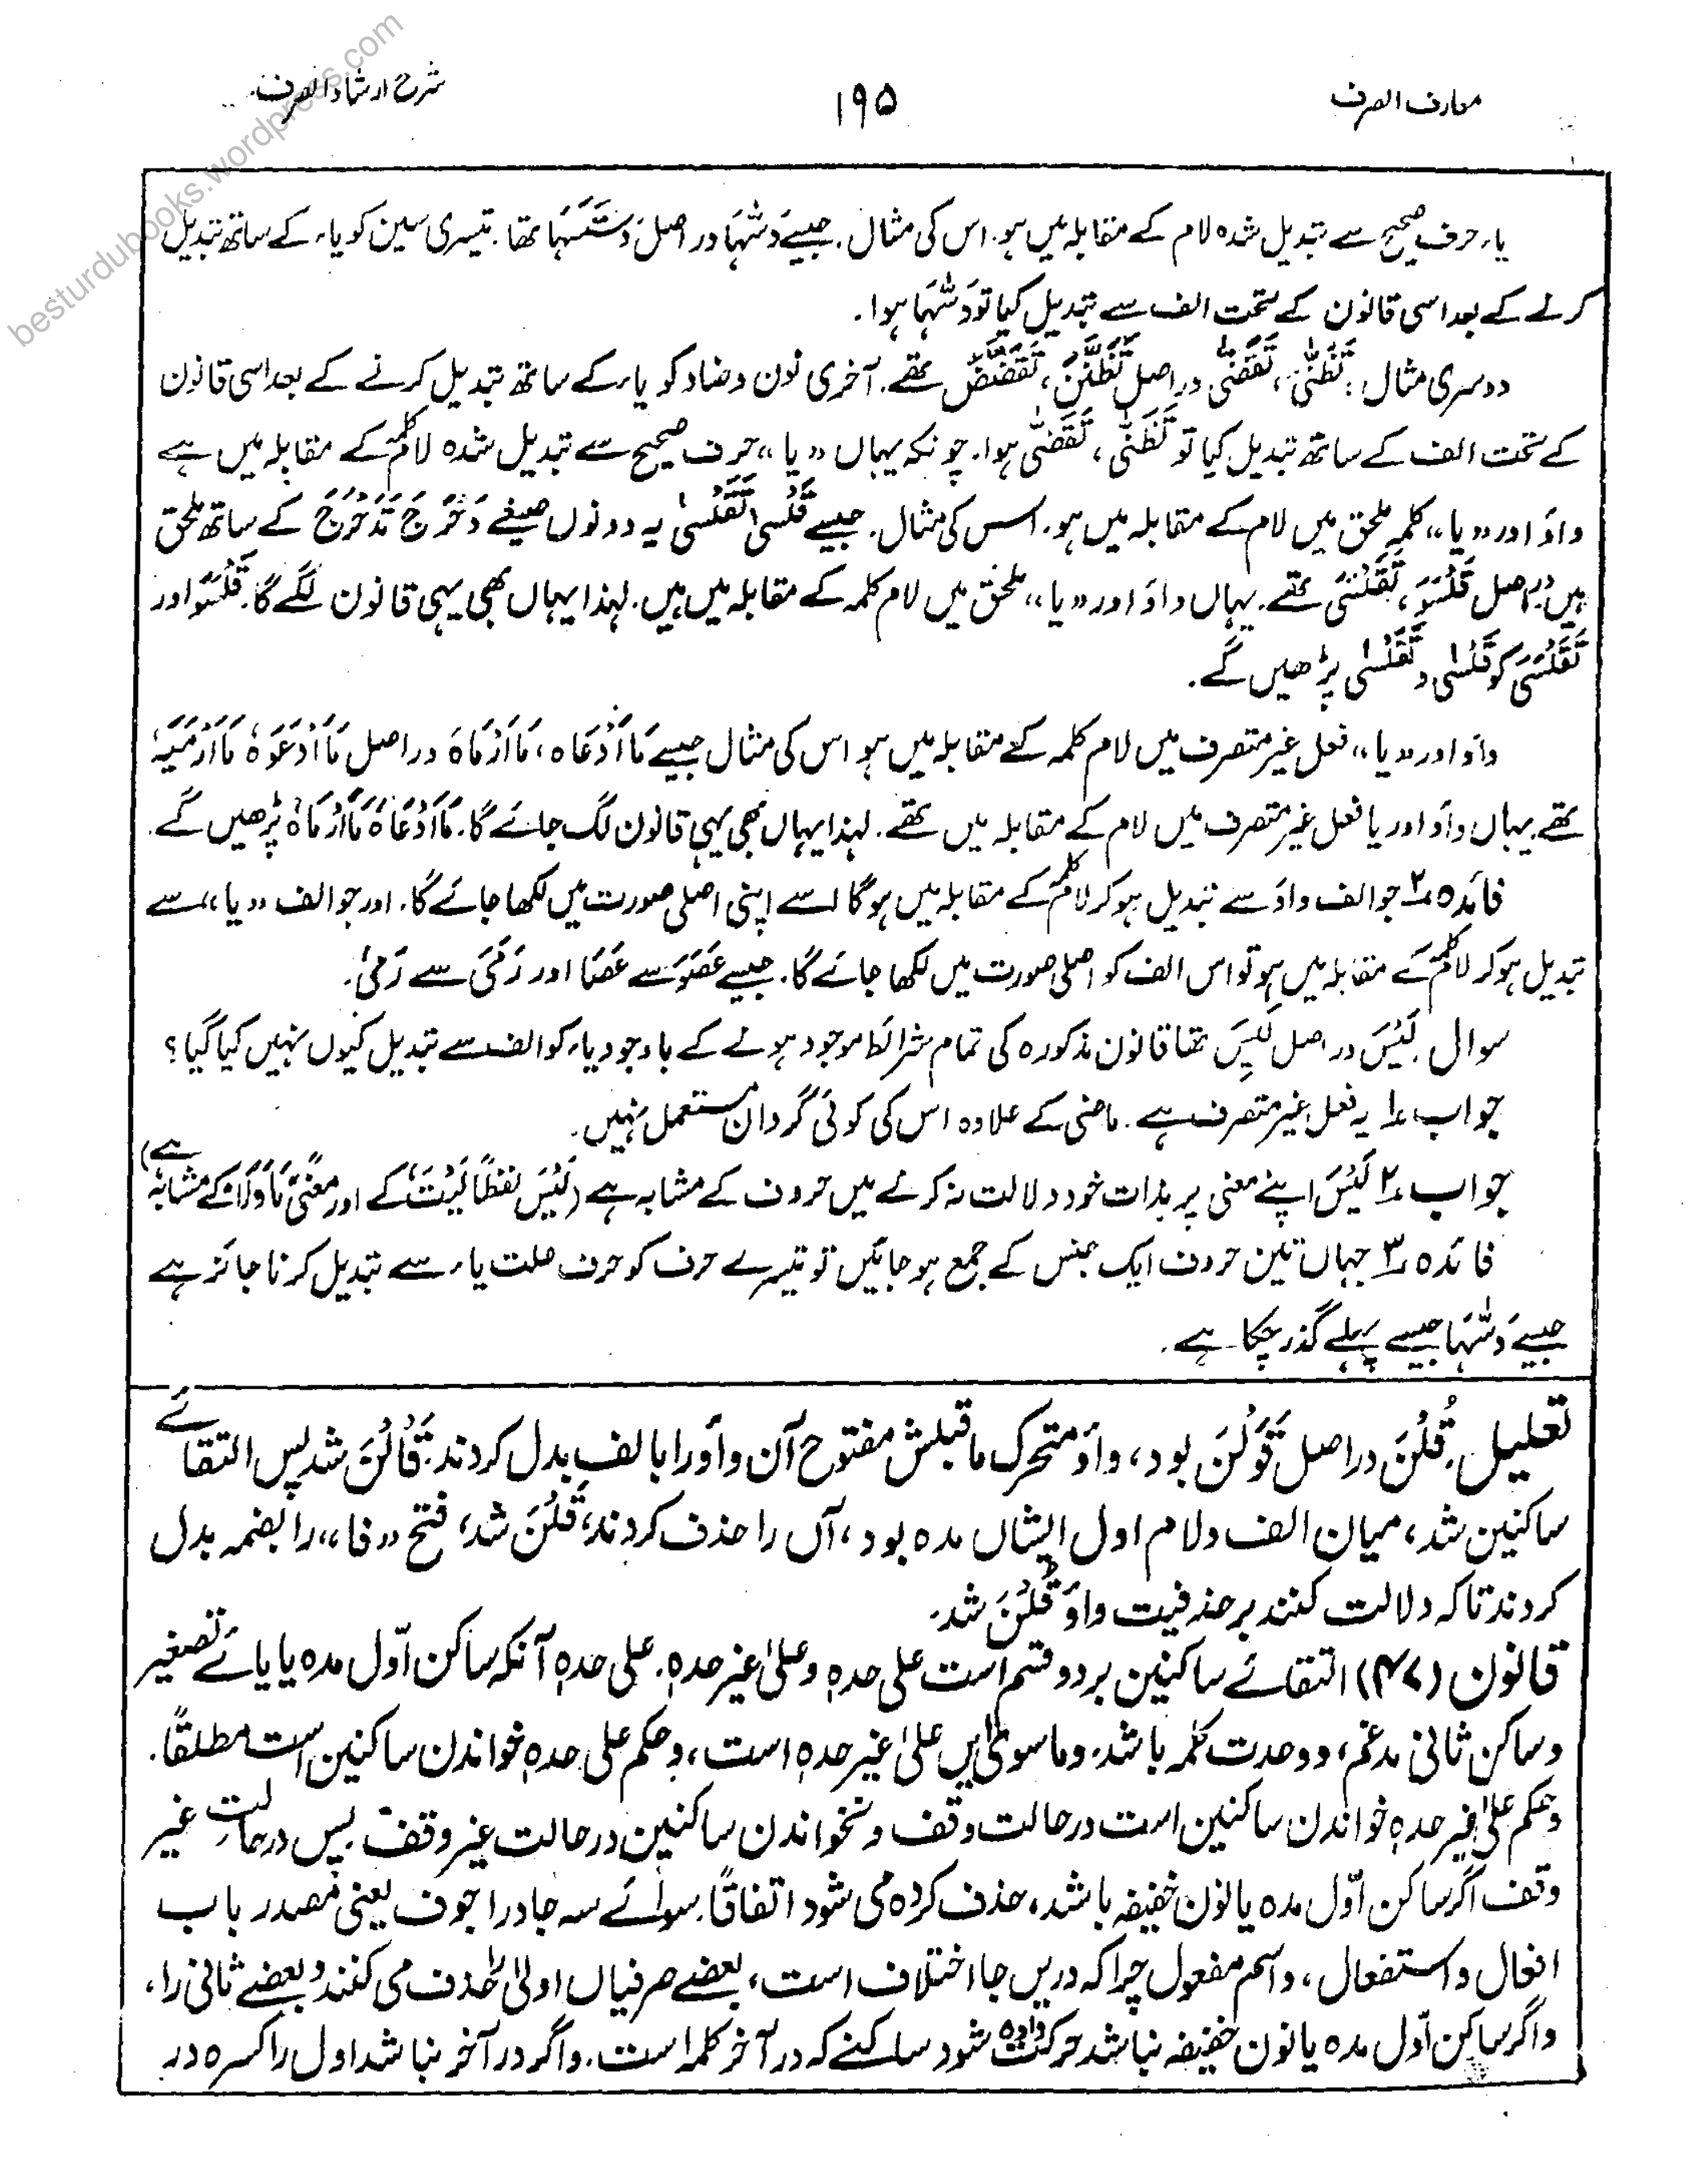 معارف الصرف
۱۹۵
شرح ارشاد الصرف
besturdubooks.wordpress.com
یاء حرف صحیح سے تبدیل شدہ لام کے مقابلہ میں ہو۔ اس کی مثال۔ جیسے دَسّٰہَا دراصل دَسَّسَہَا تھا۔ تیسری سین کو یاء کے ساتھ تبدیل
کرنے کے بعد اسی قانون کے تحت الف سے تبدیل کیا تو دَسّٰہَا ہوا۔
دوسری مثال: تَظَنّٰی، تَقَضّٰی دراصل تَظَنَّنَ، تَقَضَّضَ تھے۔ آخری نون و ضاد کو یاء کے ساتھ تبدیل کرنے کے بعد اسی قانون
کے تحت الف کے ساتھ تبدیل کیا تو تَظَنّٰی، تَقَضّٰی ہوا۔ چونکہ یہاں "یا" حرف صحیح سے تبدیل شدہ لام کلمہ کے مقابلہ میں ہے
واؤ اور "یا" کلمہ ملحق میں لام کے مقابلہ میں ہو۔ اس کی مثال۔ جیسے قَلْسٰی تَقَلْسٰی یہ دونوں صیغے دَحْرَجَ تَدَحْرَجَ کے ساتھ ملحق
ہیں دراصل قَلْسَوَ، تَقَلْسَیَ تھے۔ یہاں واؤ اور "یا" ملحق میں لام کلمہ کے مقابلہ میں ہیں۔ لہذا یہاں بھی یہی قانون لگے گا۔ قَلْسَوَ اور
تَقَلْسَیَ کو قَلْسٰی و تَقَلْسٰی پڑھیں گے۔
واؤ اور "یا" فعل غیر متصرف میں لام کلمہ کے مقابلہ میں ہو اس کی مثال جیسے مَا اَدْعَاہ، مَا اَرْمَاہَ دراصل مَا اَدْعَوَہٗ مَا اَرْمَیَہٗ
تھے۔ یہاں واؤ اور یا فعل غیر متصرف میں لام کے مقابلہ میں تھے۔ لہذا یہاں بھی یہی قانون لگ جائے گا۔ مَا اَدْعَاہُ مَا اَرْمَاہُ پڑھیں گے۔
فائدہ ۲؎ جو الف واؤ سے تبدیل ہو کر لام کلمہ کے مقابلہ میں ہوگا اسے اپنی اصلی صورت میں لکھا جائے گا۔ اور جو الف "یا" سے
تبدیل ہو کر لام کلمہ کے مقابلہ میں ہو تو اس الف کو اصلی صورت میں لکھا جائے گا۔ جیسے عَصَوَ سے عَصَا اور رَمَیَ سے رَمیٰ۔
سوال۔ لَیْسَ دراصل لَیِسَ تھا قانون مذکورہ کی تمام شرائط موجود ہونے کے باوجود یاء کو الف سے تبدیل کیوں نہیں کیا گیا؟
جواب ۱؎ یہ فعل غیر متصرف ہے۔ ماضی کے علاوہ اس کی کوئی گردان مستعمل نہیں۔
جواب ۲؎ لَیْسَ اپنے معنی پر بذات خود دلالت نہ کرنے میں حروف کے مشابہ ہے (لَیْسَ لفظاً لَیْتَ کے اور معنیً مَا وَلَا کے مشابہ ہے)
فائدہ ۳؎ جہاں تین حروف ایک جنس کے جمع ہو جائیں تو تیسرے حرف کو حرف علت یاء سے تبدیل کرنا جائز ہے
جیسے دَسّٰہَا جیسے پہلے گذر چکا ہے۔
تعلیل۔ قُلْنَ دراصل قَوَلْنَ بود، واؤ متحرک ماقبلش مفتوح آن واؤ را با الف بدل کردند۔ قَالْنَ شد پس التقائے
ساکنین شد، میان الف و لام اول ایشاں مدہ بود، آں را حذف کردند، قَلْنَ شد، فتح "فا" را بضمہ بدل
کردند تا کہ دلالت کنند بر حذفیت واؤ قُلْنَ شد۔
قانون (۴۷) التقائے ساکنین بر دو قسم است علی حدہٖ و علیٰ غیر حدہٖ۔ علی حدہٖ آنکہ ساکن اوّل مدہ یا یائے تصغیر
و ساکن ثانی مدغم، و وحدت کلمہ باشد۔ و ما سویٰ ایں علیٰ غیر حدہٖ است، و حکم علی حدہٖ خواندن ساکنین است مطلقاً۔
و حکم علیٰ غیر حدہٖ خواندن ساکنین است در حالت وقف و نخواندن ساکنین در حالت غیر وقف۔ پس در حالت غیر
وقف اگر ساکن اوّل مدہ یا نون خفیفہ باشد، حذف کردہ می شود اتفاقاً۔ سوائے سہ جا در اجوف یعنی مصدر باب
افعال و استفعال، و اسم مفعول چرا کہ دریں جا اختلاف است، بعضے صرفیاں اولیٰ حذف می کنند و بعضے ثانی را،
و اگر ساکن اوّل مدہ یا نون خفیفہ نباشد حرکت دادہ شود ساکنے کہ در آخر کلمہ است۔ و اگر در آخر نباشد اول را کسرہ در